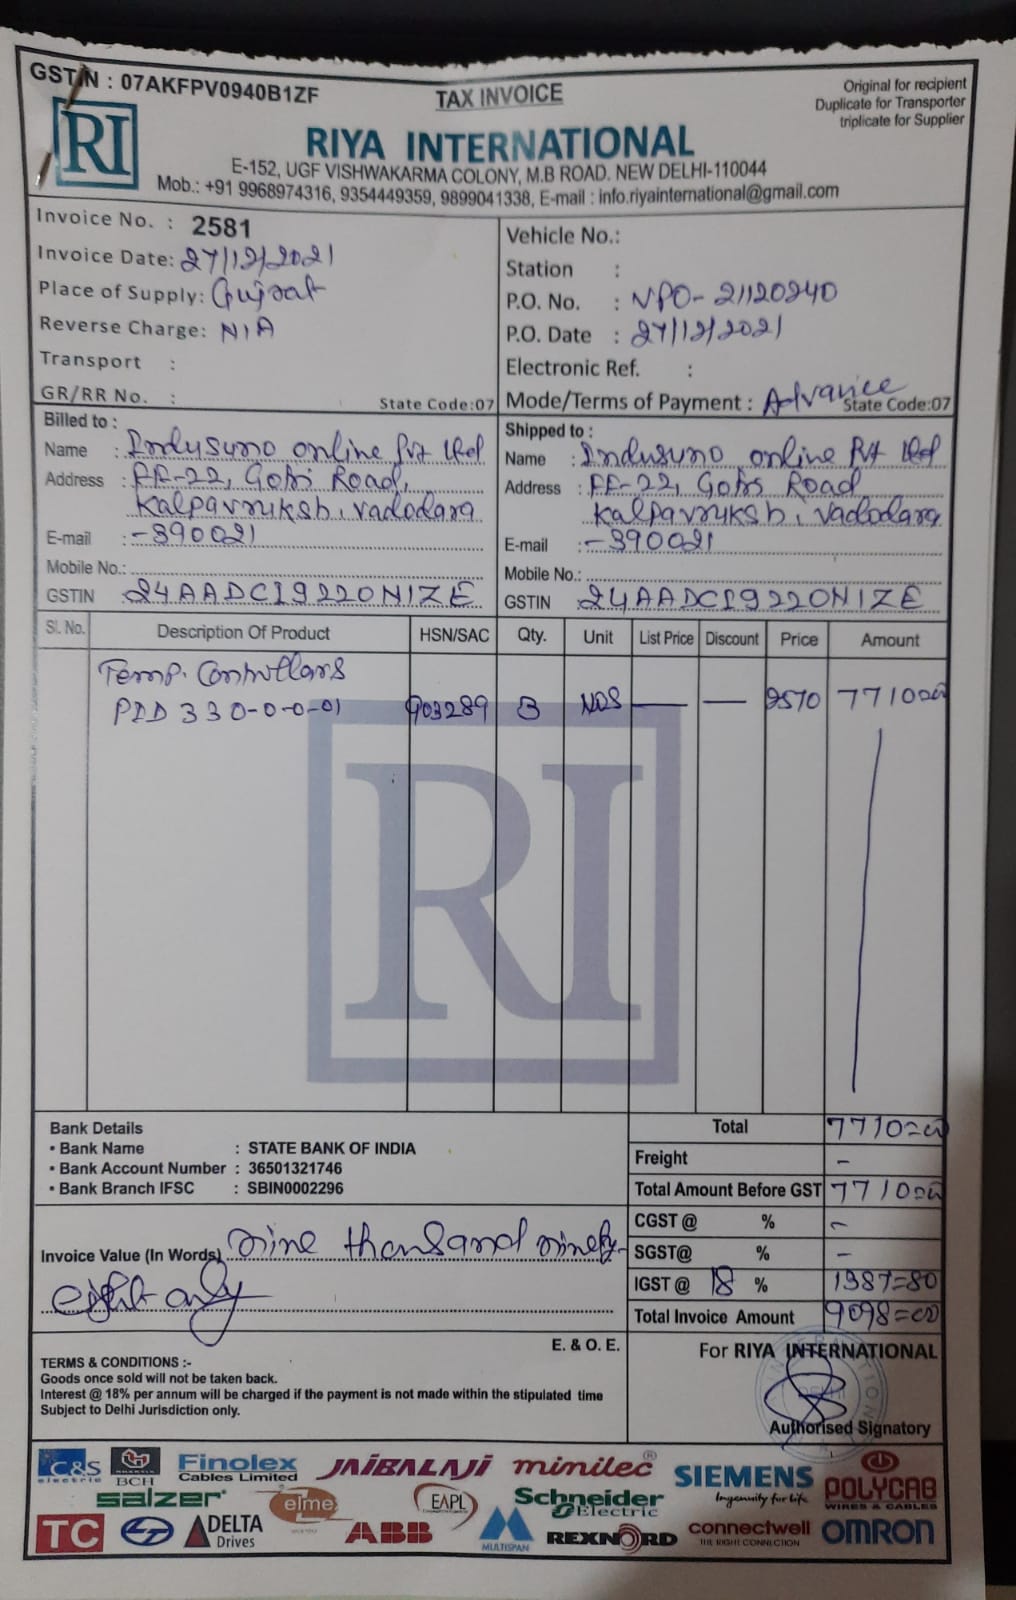 GSTIN : 07AKFPV0940B1ZF
TAX INVOICE
Original for recipient
Duplicate for Transporter
triplicate for Supplier
RI
RIYA INTERNATIONAL
E-152, UGF VISHWAKARMA COLONY, M.B ROAD. NEW DELHI-110044
Mob.: +91 9968974316, 9354449359, 9899041338, E-mail : info.riyainternational@gmail.com
Invoice No. : 2581
Invoice Date: 27/12/2021
Place of Supply: Gujrat
Reverse Charge: N/A
Transport :
GR/RR No. :
State Code:07
Vehicle No.:
Station :
P.O. No. : NPO-21120240
P.O. Date : 27/12/2021
Electronic Ref. :
Mode/Terms of Payment : Advance
State Code:07
Billed to :
Name : Indusuno online Pvt Ltd
Address : FF-22, Gotri Road,
Kalpavruksh, Vadodara
E-mail : -390021
Mobile No.:
GSTIN 24AADCI9220N1ZE
Shipped to :
Name : Indusuno online Pvt Ltd
Address : FF-22, Gotri Road
Kalpavruksh, Vadodara
E-mail : -390021
Mobile No.:
GSTIN 24AADCI9220N1ZE
Sl. No. Description Of Product HSN/SAC Qty. Unit List Price Discount Price Amount
Temp. Controllars
PID 330-0-0-01 903289 3 NOS — — 2570 7710=00
RI
Bank Details
• Bank Name : STATE BANK OF INDIA
• Bank Account Number : 36501321746
• Bank Branch IFSC : SBIN0002296
Total 7710=00
Freight -
Total Amount Before GST 7710=00
CGST @ % -
SGST@ % -
IGST @ 18 % 1387=80
Total Invoice Amount 9098=00
Invoice Value (In Words) nine thousand ninety-
eight only
E. & O. E.
TERMS & CONDITIONS :-
Goods once sold will not be taken back.
Interest @ 18% per annum will be charged if the payment is not made within the stipulated time
Subject to Delhi Jurisdiction only.
For RIYA INTERNATIONAL
Authorised Signatory
C&S electric
BCH
Finolex
Cables Limited
JAIBALAJI
minilec
SIEMENS
Ingenuity for life
POLYCAB
WIRES & CABLES
salzer
elmex
EAPL
Schneider
Electric
TC
L&T
DELTA
Drives
ABB
MULTISPAN
REXNORD
connectwell
THE RIGHT CONNECTION
OMRON